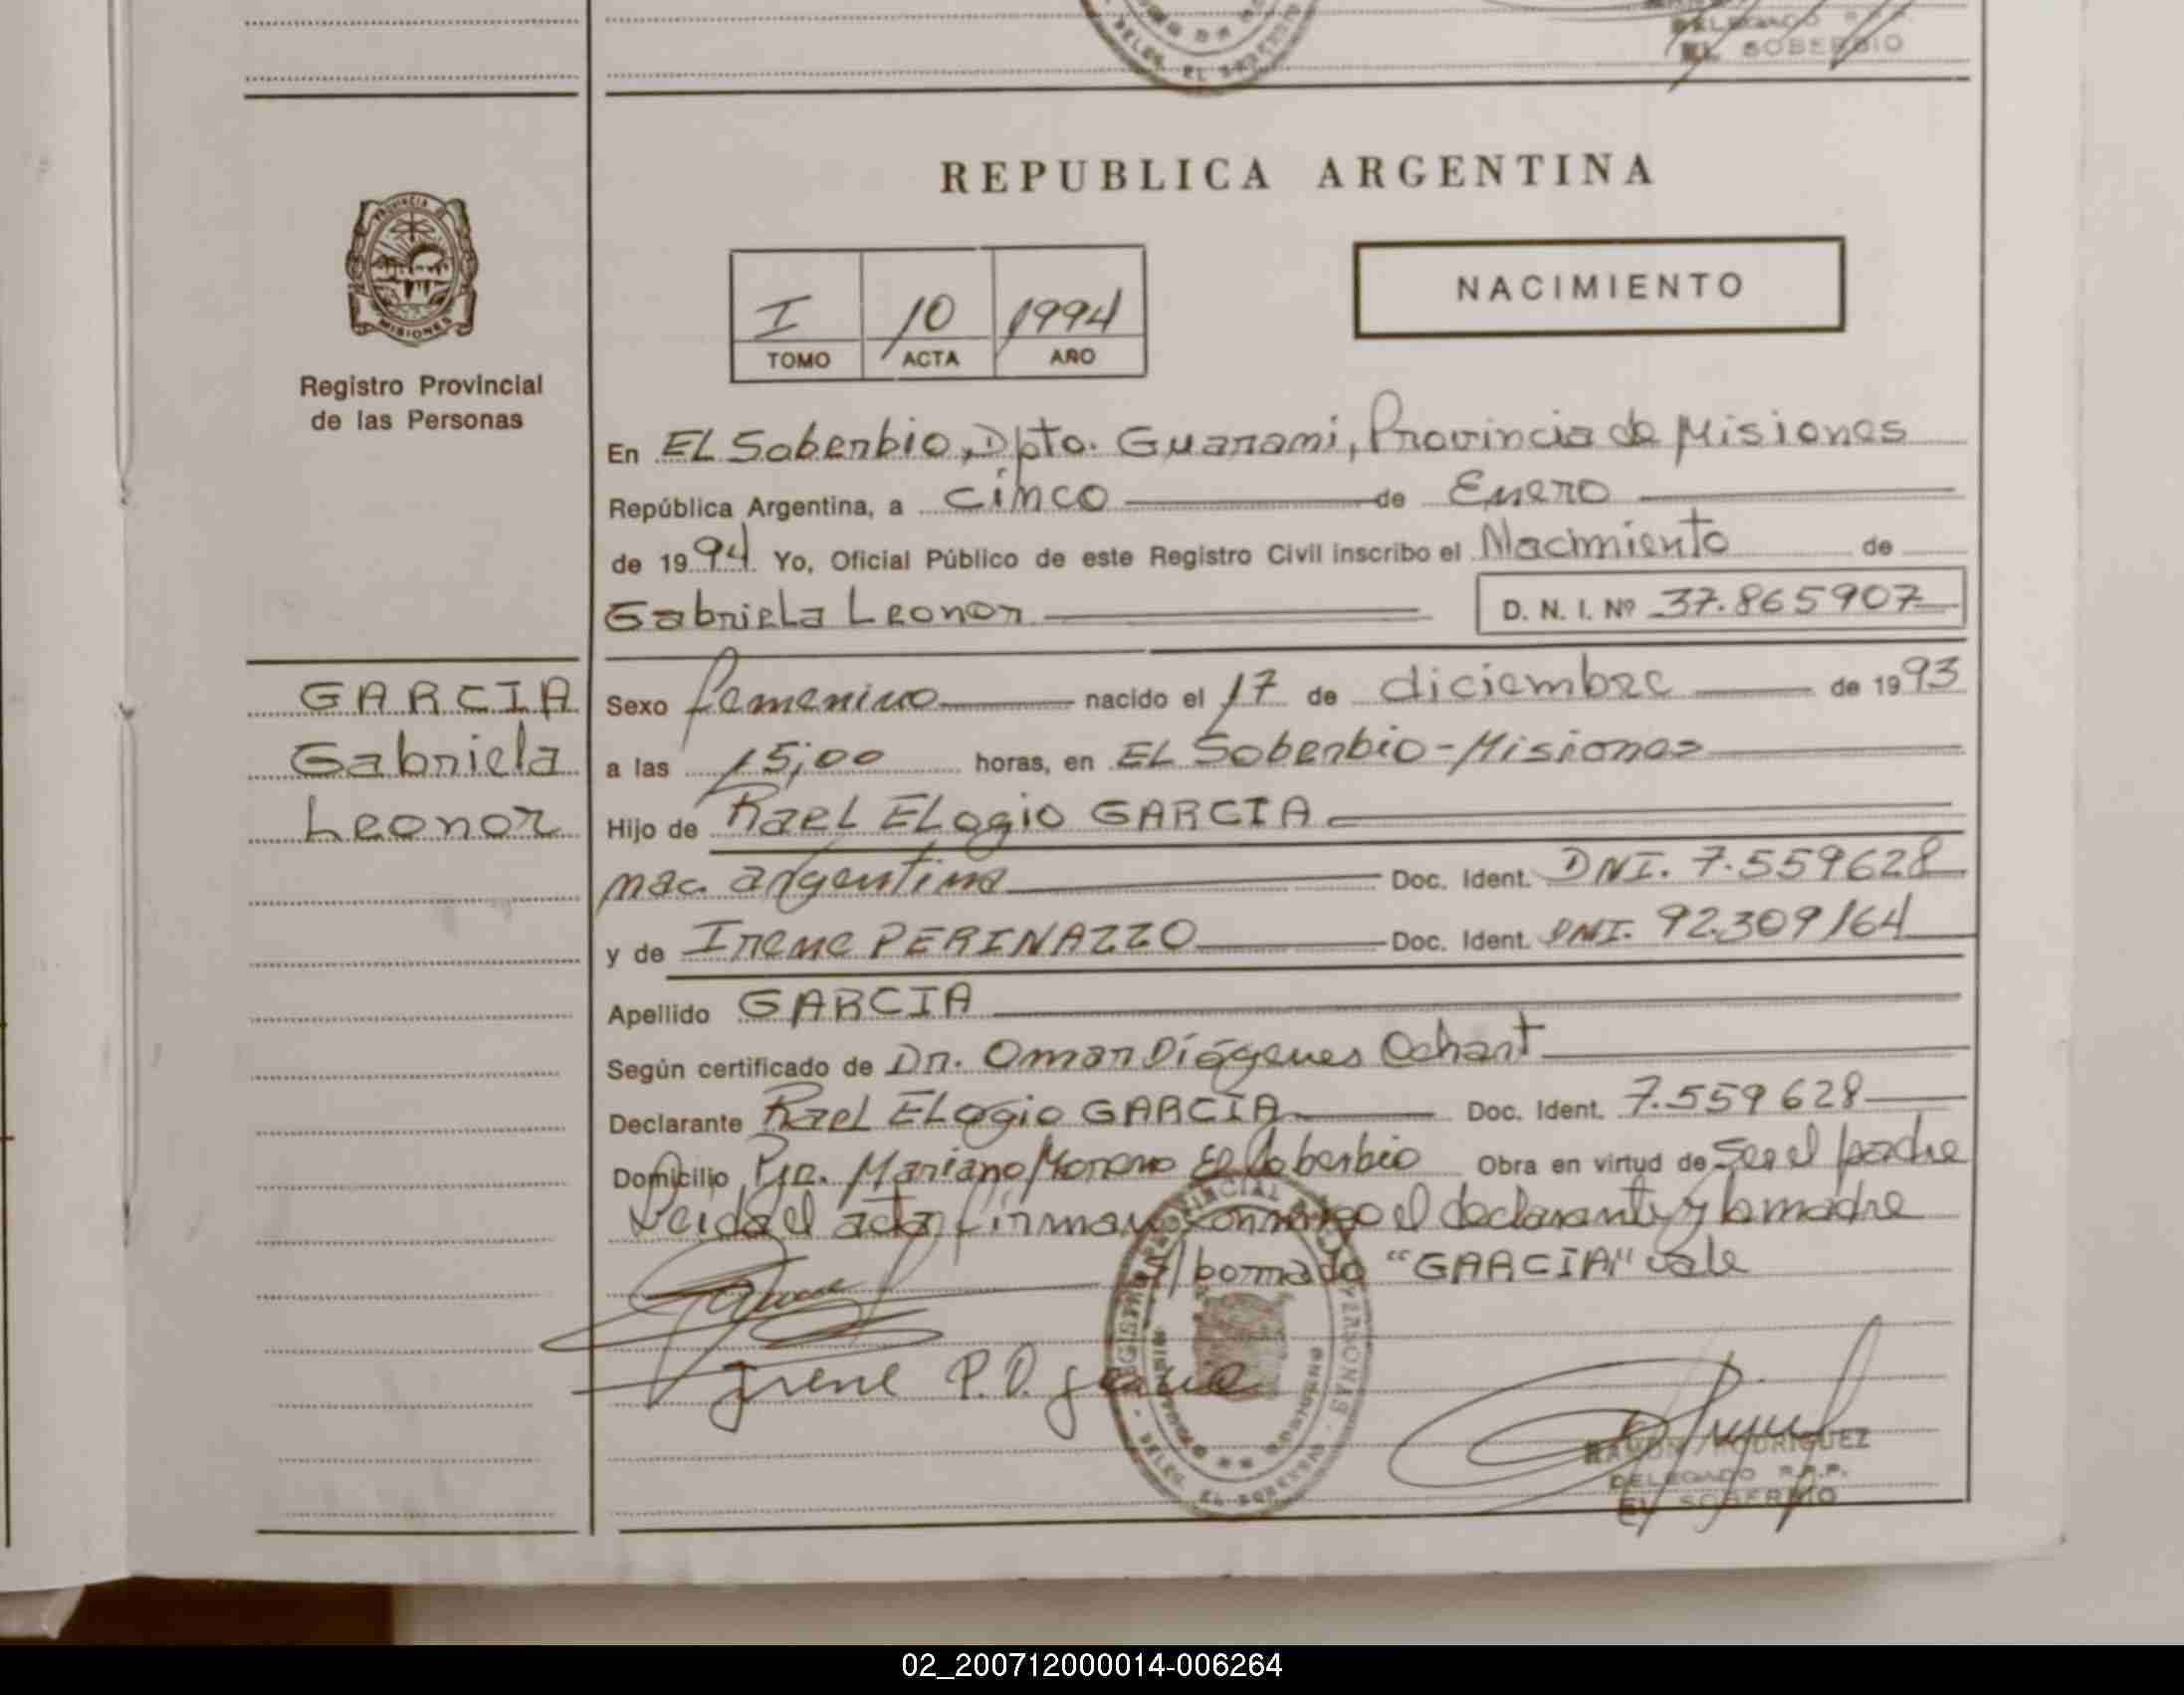 EL SOBERBIO
REPUBLICA ARGENTINA
PROVINCIA DE
MISIONES
NACIMIENTO
I 10 1994
TOMO ACTA AÑO
Registro Provincial
de las Personas
En EL Soberbio, Dpto. Guarani, Provincia de Misiones
República Argentina, a cinco de Enero
de 1994 Yo, Oficial Público de este Registro Civil inscribo el Nacimiento de
Gabriela Leonor D. N. I. Nº 37.865907
GARCIA
Gabriela
Leonor
Sexo femenino nacido el 17 de diciembre de 1993
a las 15;00 horas, en EL Soberbio-Misiones
Hijo de Rael ELogio GARCIA
nac. argentina Doc. Ident. DNI. 7.559628
y de Irene PERINAZZO Doc. Ident. DNI. 92.309164
Apellido GARCIA
Según certificado de Dr. Omar Diógenes Ochart
Declarante Rael ELogio GARCIA Doc. Ident. 7.559628
Domicilio Pje. Mariano Moreno El Soberbio Obra en virtud de Ser el padre
Leida el acta firman conmigo el declarante y la madre
s/borrado "GARCIA" vale
Irene P. D. garcia
RAMON RODRIGUEZ
DELEGADO R.P.P.
EL SOBERBIO
02_200712000014-006264